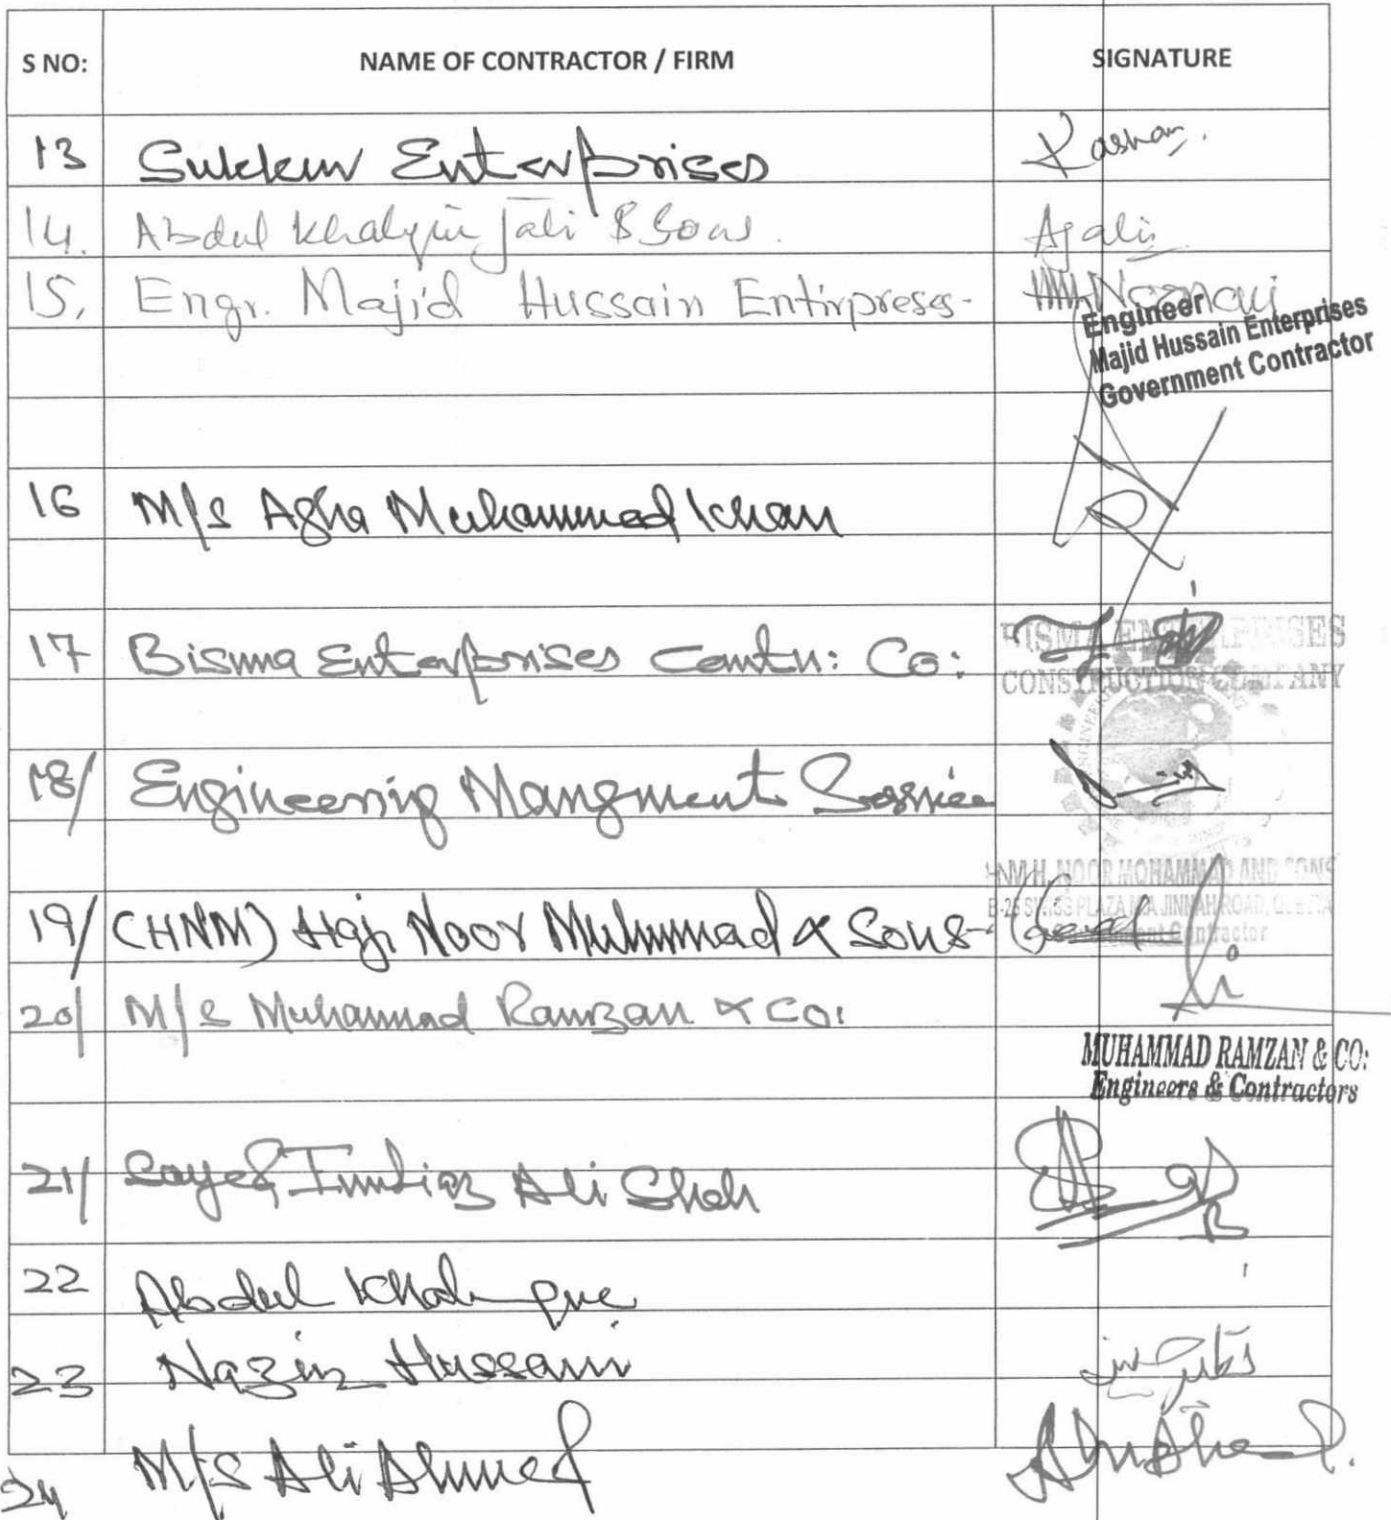 S NO: NAME OF CONTRACTOR / FIRM SIGNATURE
13 Sukkur Enterprises Kashan.
14. Abdul Khalque Jali & Sons. Ajali
15. Engr. Majid Hussain Entirpreses-
Engineer
Majid Hussain Enterprises
Government Contractor
16 M/s Agha Muhammad Khan
17 Bisma Enterprises Contn: Co:
BISMA ENTERPRISES
CONSTRUCTION COMPANY
18/ Engineering Mangment Service
NOOR MOHAMMAD AND SONS
PLAZA M.A JINNAH ROAD, QUETTA
Contractor
19/ (HNM) Haji Noor Muhmmad & Sons-
20/ M/s Muhammad Ramzan & Co:
MUHAMMAD RAMZAN & CO:
Engineers & Contractors
21/ Sayed Imtiaz Ali Shah
22 Abdul Khalique
23 Nazir Hussain
24 M/s Ali Ahmed